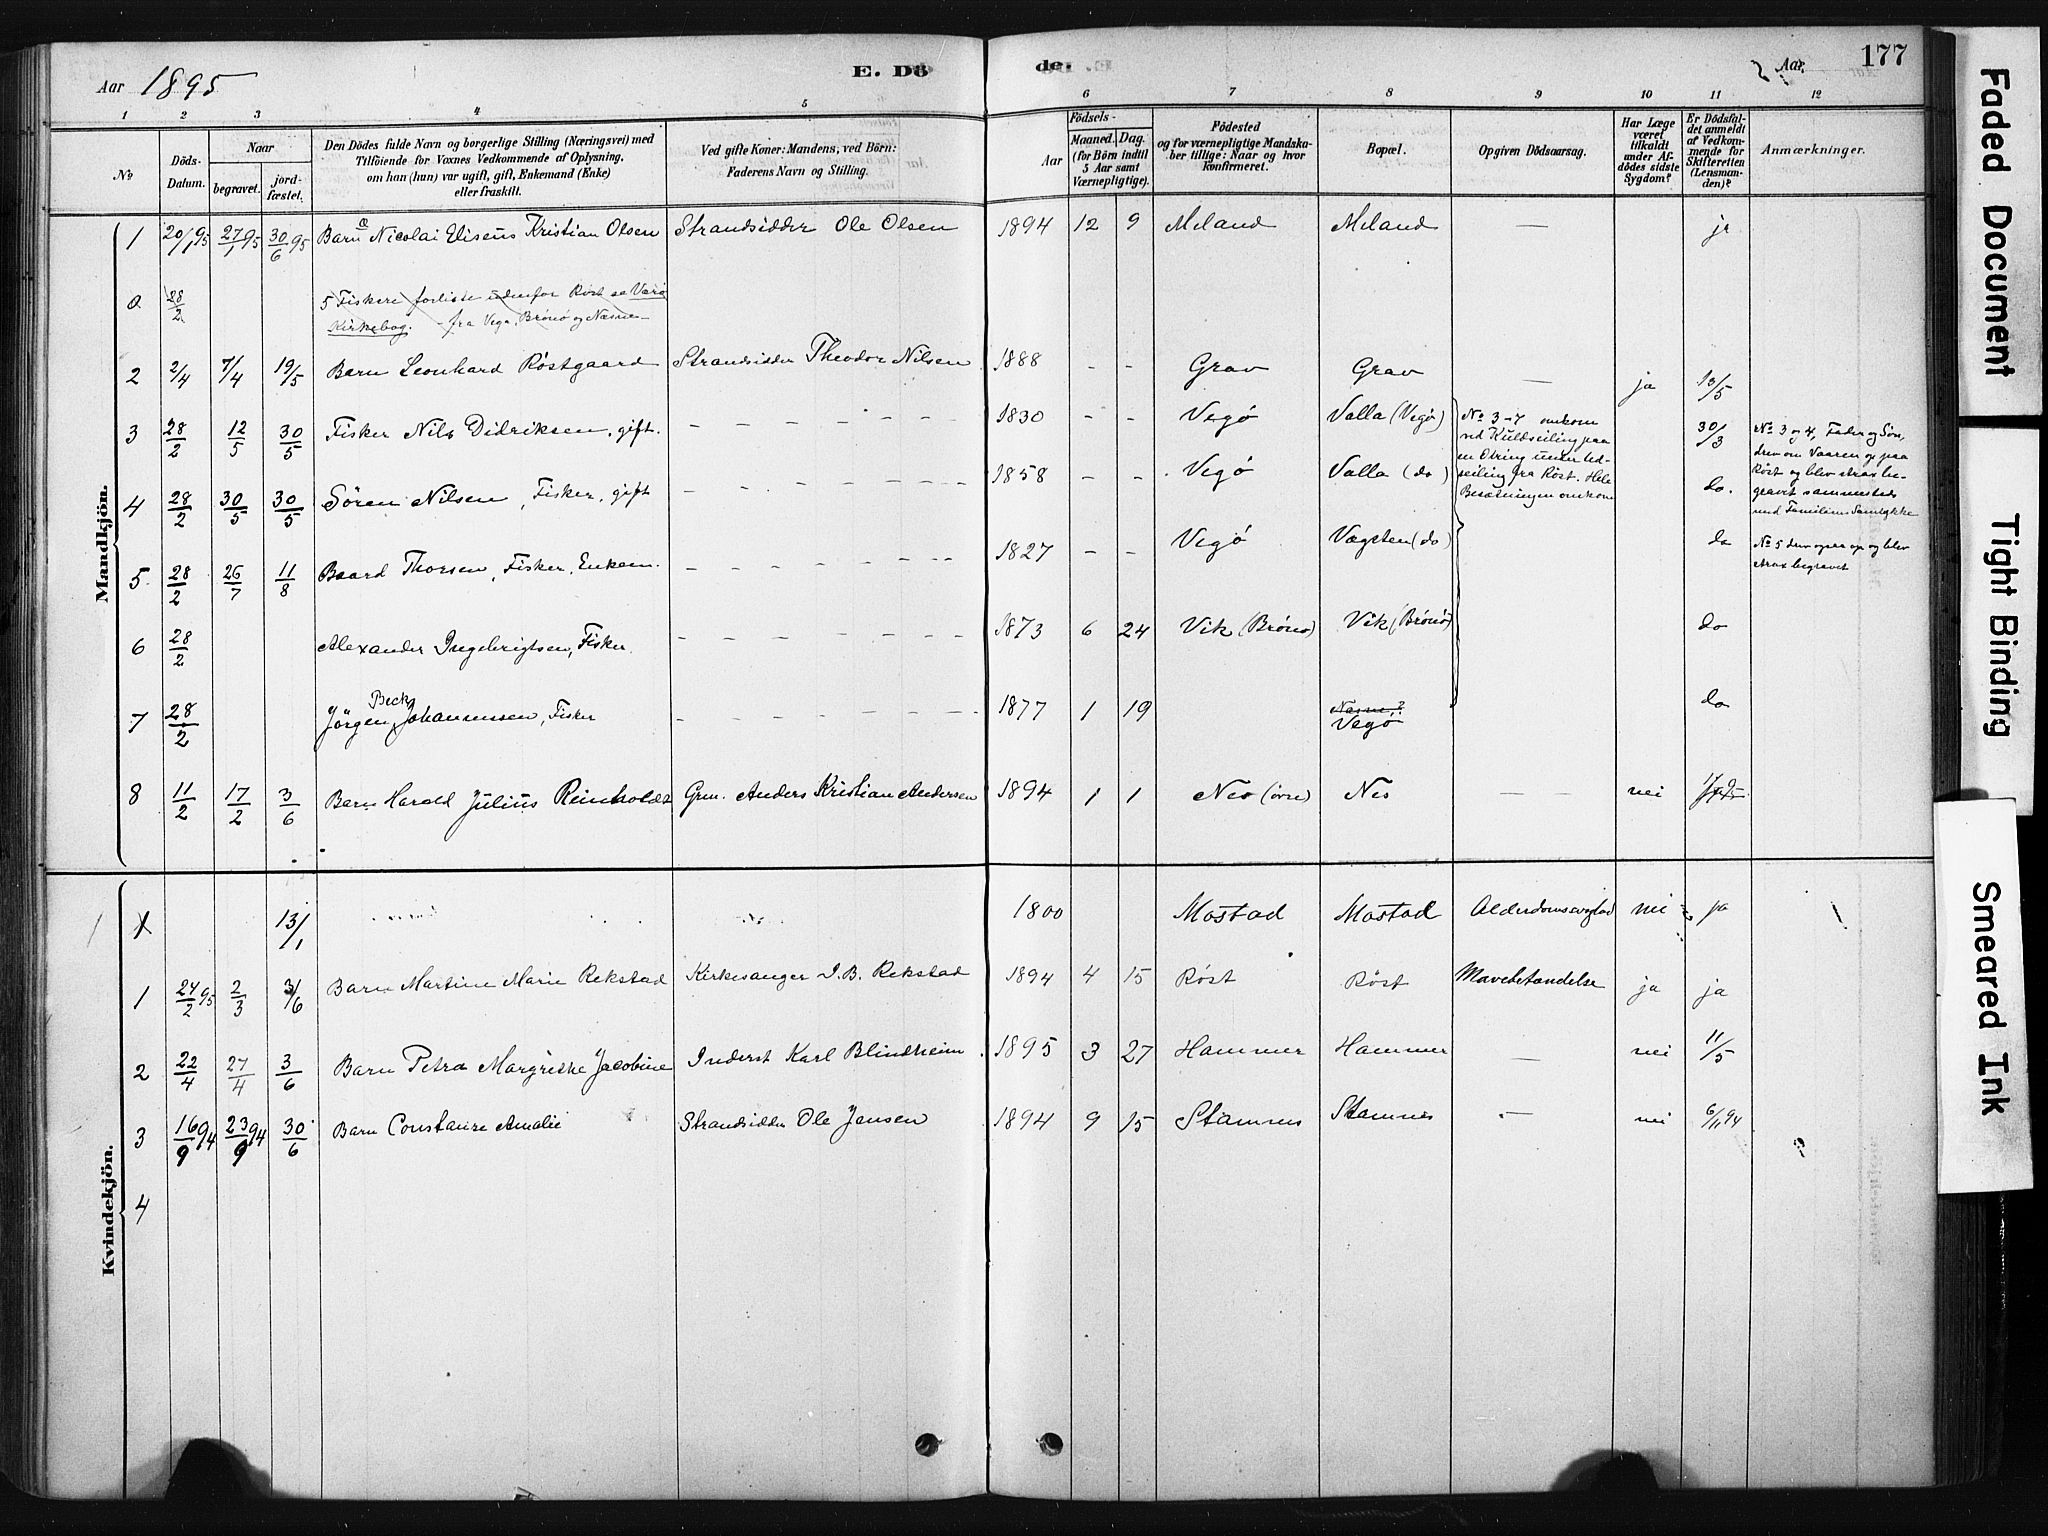 Aar 1895
E. Døde.
Aar
177
1 2 3 4 5 6 7 8 9 10 11 12
No
Döds-Datum.
Naar
begravet.
jord-fæstet.
Den Dödes fulde Navn og borgerlige Stilling (Næringsvei) med
Tilföiende for Voxnes Vedkommende af Oplysning,
om han (hun) var ugift, gift, Enkemand (Enke)
eller fraskilt.
Ved gifte Koner: Mandens; ved Börn:
Faderens Navn og Stilling.
Födsels-
Aar
Maaned. Dag.
(for Börn indtil
5 Aar samt
Værnepligtige).
Födested
og for værnepligtige Mandska-
ber tillige: Naar og hvor
konfirmeret.
Bopæl.
Opgiven Dödsaarsag.
Har Læge
været
tilkaldt
under Af-
dödes sidste
Sygdom?
Er Dödsfal-
det anmeldt
af Vedkom-
mende for
Skifteretten
(Lensman-
den)?
Anmærkninger.
Mandkjön.
1 20/1 95 27/1 95 30/6 95 Barn Nicolai Eliseus Kristian Olsen Strandsidder Ole Olsen 1894 12 9 Meland Meland — ja
28/2 5 Fiskere forliste udenfor Röst se Værö
Kirkebog. - fra Vega, Brönö og Næsne-
2 2/4 7/4 19/5 Barn Leonhard Röstgaard Strandsidder Theodor Nilsen 1888 - - Grav Grav — ja 13/5
3 28/2 12/5 30/5 Fisker Nils Didriksen, gift. 1830 - - Vegö Valla (Vegö) 30/3
No 3-7 omkom
ved Kuldseiling paa
en Otring under Ud-
seiling fra Röst. Hele
Besætningen omkom
No 3 og 4, Fader og Sön,
drev om Vaaren op paa
Röst og blev strax be-
gravet sammesteds
med Familiens Samtykke
4 28/2 30/5 30/5 Sören Nilsen, Fisker, gift 1858 - - Vegö Valla (do) do.
5. 28/2 26/7 11/8 Baard Thorsen, Fisker, Enkem. 1827 - - Vegö Vægsten (do) do
No 5 drev ogsaa op og blev
strax begravet
6 28/2 Alexander Ingebrigtsen, Fisker. 1873 6 24 Vik (Brönö) Vik (Brönö) do
7 28/2 Jörgen Beck Johannessen, Fisker 1877 1 19 Næsne? Vegö do
8 11/2 17/2 3/6 Barn Harold Julius Reinholdt Grm. Anders Kristian Andersen 1894 1 1 Nes (övre) Nes — nei
Kvindekjön.
1 13/1 1800 Mostad Mostad Alderdomssvaghed nei ja
1 24/2 95 2/3 3/6 Barn Martine Marie Rekstad Kirkesanger I. B. Rekstad 1894 4 15 Röst Röst Mavebetændelse ja ja
2 22/4 27/4 3/6 Barn Petra Margrethe Jacobine Inderst Karl Blindheim 1895 3 27 Hammer Hammer — nei 11/5
3 16/9 94 23/9 94 30/6 Barn Constance Amalie Strandsidder Ole Jensen 1894 9 15 Stamnes Stamnes — nei 6/11 94
4
Faded Document
Tight Binding
Smeared Ink